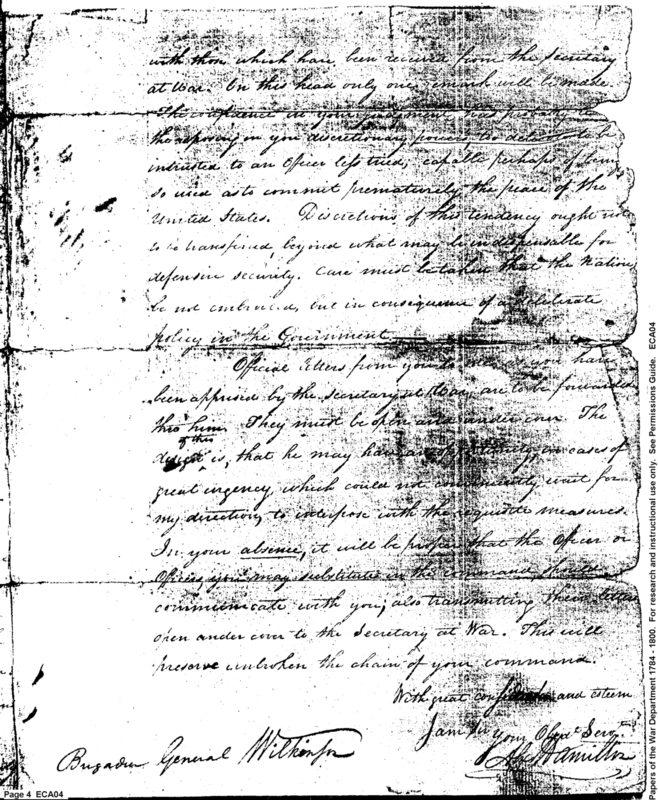 with those which have been received from the Secretary
at War. On this head only one remark will be made.
The confidence in your judgment has probably
the reposing in you discretionary powers, too delicate to be
intrusted to an Officer less tried; capable perhaps of being
so used as to commit prematurely the peace of the
United States. Discretions of this tendency ought not
to be transferred, beyond what may be indispensable for
defensive security. Care must be taken that the Nation
be not embroiled, but in consequence of a deliberate
policy in the Government
Official Letters from you to me as you have
been apprised by the Secretary at War, are to be forwarded
thro' him. They must be open and under cover. The
design of this is, that he may have an opportunity, in cases of
great urgency which could not conveniently wait for
my direction, to interpose with the requisite measures.
In your absence, it will be proper that the Officer or
Officers you may substitute in the command should
communicate with you; also transmitting their letters
open under cover to the Secretary at War. This will
preserve unbroken the chain of your command.
With great consideration and esteem
I am Sir your Obedt Servt
Hamilton
Brigadier General Wilkinson
Page 4 ECA04
Papers of the War Department 1784 - 1800. For research and instructional use only. See Permissions Guide. ECA04